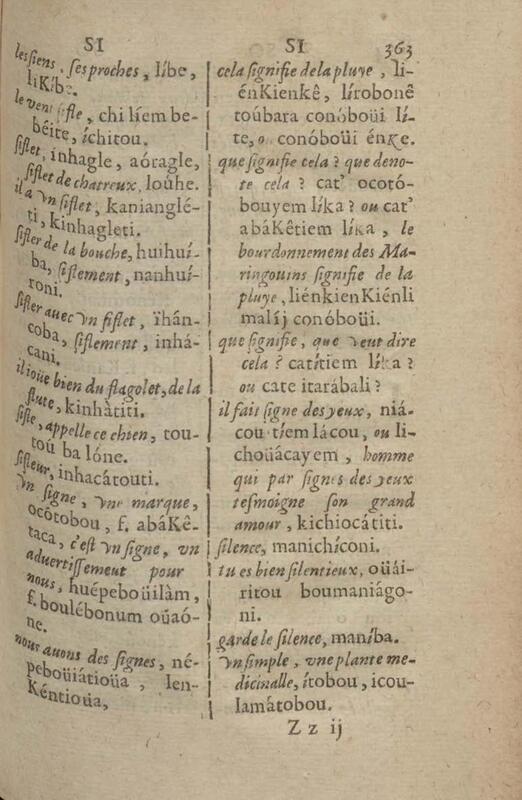 SI
les siens, ses proches, líbe,
liKíbe.
le vent sifle, chi líem be-
béite, íchitou.
siflet, inhagle, aóragle,
siflet de chatreux, loúhe.
il a vn siflet, kanianglé-
ti, kinhagleti.
sifler de la bouche, huihuí-
ba, siflement, nanhuí-
roni.
sifler auec vn siflet, ïhán-
coba, siflement, inhá-
cani.
il ioüe bien du flagolet, de la
flute, kinhàtiti.
sifle, appelle ce chien, tou-
toú ba lóne.
sifleur, inhacátouti.
vn signe, vne marque,
ocótobou, f. abáKê-
taca, c'est vn signe, vn
aduertissement pour
nous, huépeboüilàm,
f. boulébonum oüaó-
ne.
nous auons des signes, né-
peboüiátioüa, len-
Kéntioüa,
SI 363
cela signifie de la pluye, li-
énKienkê, lírobonê
toúbara conóboüi lí-
te, o conóboüi énge.
que signifie cela? que deno-
te cela? cat' ocotó-
bouyem líka? ou cat'
abáKêtiem líka, le
bourdonnement des Ma-
ringouins signifie de la
pluye, liénkienKiénli
malíj conóboüi.
que signifie, que veut dire
cela? catítiem líka?
ou cate itarábali?
il fait signe des yeux, niá-
cou tíem lácou, ou li-
choüácayem, homme
qui par signes des yeux
tesmoigne son grand
amour, kichiocátiti.
silence, manichíconi.
tu es bien silentieux, oüái-
ritou boumaniágo-
ni.
garde le silence, maníba.
vn simple, vne plante me-
dicinalle, ítobou, icou-
lamátobou.
Z z ij